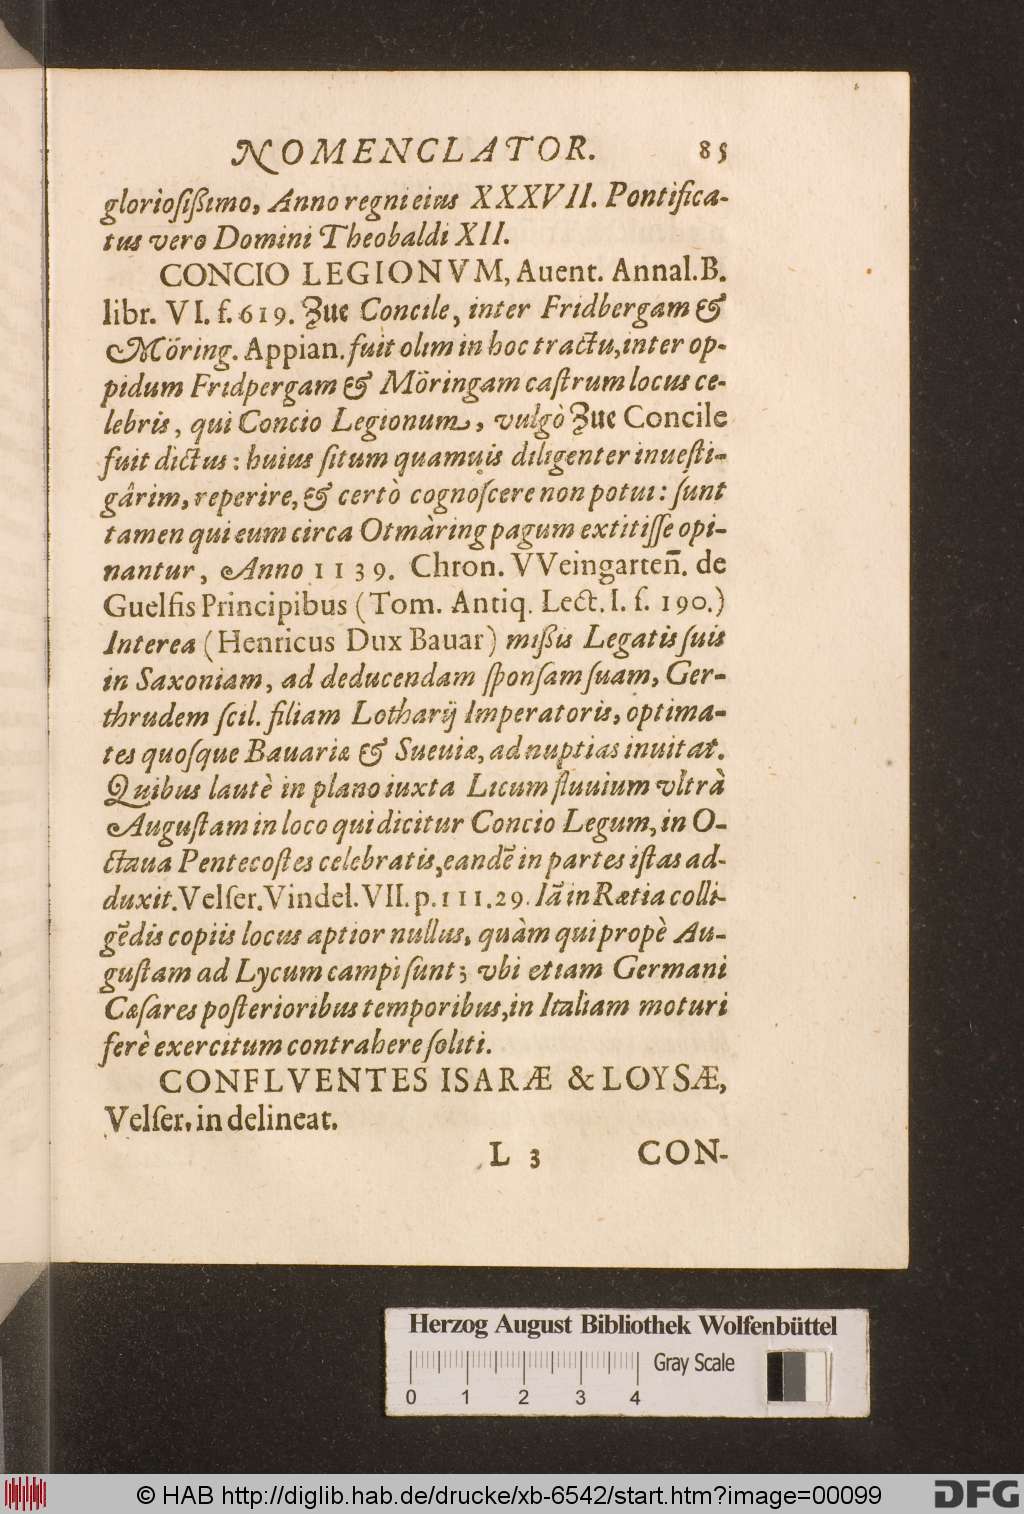 NOMENCLATOR. 85
glorioſißimo, Anno regni eius XXXVII. Pontifica-
tus vero Domini Theobaldi XII.
CONCIO LEGIONVM, Auent. Annal. B.
libr. VI. f. 619. Zue Concile, inter Fridbergam &
Möring. Appian. fuit olim in hoc tractu, inter op-
pidum Fridpergam & Möringam caſtrum locus ce-
lebris, qui Concio Legionum, vulgò Zue Concile
fuit dictus: huius ſitum quamuis diligenter inueſti-
gârim, reperire, & certò cognoſcere non potui: ſunt
tamen qui eum circa Otmàring pagum extitiſſe opi-
nantur, Anno 1139. Chron. VVeingarteñ. de
Guelfis Principibus (Tom. Antiq. Lect. I. f. 190.)
Interea (Henricus Dux Bauar) mißis Legatis ſuis
in Saxoniam, ad deducendam ſponſam ſuam, Ger-
thrudem ſcil. filiam Lotharij Imperatoris, optima-
tes quoſque Bauariæ & Sueuiæ, ad nuptias inuitat.
Quibus lautè in plano iuxta Licum fluuium vltrà
Auguſtam in loco qui dicitur Concio Legum, in O-
ctaua Pentecoſtes celebratis, eandẽ in partes iſtas ad-
duxit. Velſer. Vindel. VII. p. 111. 29. Iã in Rætia colli-
gẽdis copiis locus aptior nullus, quàm qui propè Au-
guſtam ad Lycum campi ſunt; vbi etiam Germani
Cæſares poſterioribus temporibus, in Italiam moturi
ferè exercitum contrahere ſoliti.
CONFLVENTES ISARÆ & LOYSÆ,
Velſer. in delineat.
L 3 CON-
Herzog August Bibliothek Wolfenbüttel
Gray Scale
0 1 2 3 4
© HAB http://diglib.hab.de/drucke/xb-6542/start.htm?image=00099
DFG